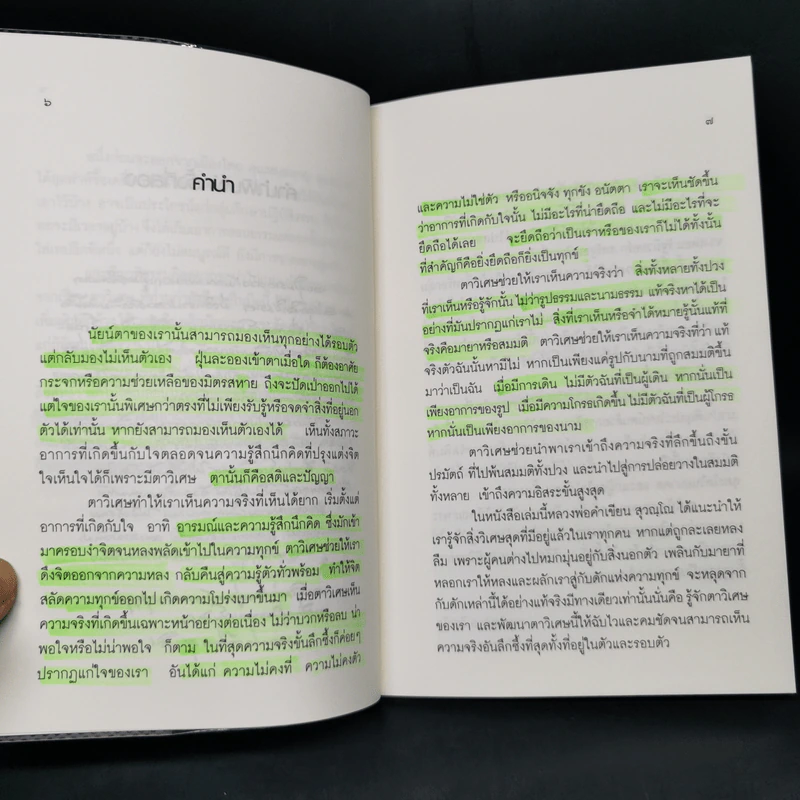 ๖
คำนำ
นัยน์ตาของเรานั้นสามารถมองเห็นทุกอย่างได้รอบตัว
แต่กลับมองไม่เห็นตัวเอง ฝุ่นละอองเข้าตาเมื่อใด ก็ต้องอาศัย
กระจกหรือความช่วยเหลือของมิตรสหาย ถึงจะปัดเป่าออกไปได้
แต่ใจของเรานั้นพิเศษกว่าตรงที่ไม่เพียงรับรู้หรือจดจำสิ่งที่อยู่นอก
ตัวได้เท่านั้น หากยังสามารถมองเห็นตัวเองได้ เห็นทั้งสภาวะ
อาการที่เกิดขึ้นกับใจตลอดจนความรู้สึกนึกคิดที่ปรุงแต่งจิต
ใจเห็นใจได้ก็เพราะมีตาวิเศษ ตานั้นก็คือสติและปัญญา
ตาวิเศษทำให้เราเห็นความจริงที่เห็นได้ยาก เริ่มตั้งแต่
อาการที่เกิดกับใจ อาทิ อารมณ์และความรู้สึกนึกคิด ซึ่งมักเข้า
มาครอบงำจิตจนหลงพลัดเข้าไปในความทุกข์ ตาวิเศษช่วยให้เรา
ดึงจิตออกจากความหลง กลับคืนสู่ความรู้ตัวทั่วพร้อม ทำให้จิต
สลัดความทุกข์ออกไป เกิดความโปร่งเบาขึ้นมา เมื่อตาวิเศษเห็น
ความจริงที่เกิดขึ้นเฉพาะหน้าอย่างต่อเนื่อง ไม่ว่าบวกหรือลบ น่า
พอใจหรือไม่น่าพอใจ ก็ตาม ในที่สุดความจริงขั้นลึกซึ้งก็ค่อยๆ
ปรากฏแก่ใจของเรา อันได้แก่ ความไม่คงที่ ความไม่คงตัว
๗
และความไม่ใช่ตัว หรืออนิจจัง ทุกขัง อนัตตา เราจะเห็นชัดขึ้น
ว่าอาการที่เกิดกับใจนั้น ไม่มีอะไรที่น่ายึดถือ และไม่มีอะไรที่จะ
ยึดถือได้เลย จะยึดถือว่าเป็นเราหรือของเราก็ไม่ได้ทั้งนั้น
ที่สำคัญก็คือยิ่งยึดถือก็ยิ่งเป็นทุกข์
ตาวิเศษช่วยให้เราเห็นความจริงว่า สิ่งทั้งหลายทั้งปวง
ที่เราเห็นหรือรู้จักนั้น ไม่ว่ารูปธรรมและนามธรรม แท้จริงหาได้เป็น
อย่างที่มันปรากฏแก่เราไม่ สิ่งที่เราเห็นหรือจำได้หมายรู้นั้นแท้ที่
จริงคือมายาหรือสมมติ ตาวิเศษช่วยให้เราเห็นความจริงที่ว่า แท้
จริงตัวฉันนั้นหามีไม่ หากเป็นเพียงแค่รูปกับนามที่ถูกสมมติขึ้น
มาว่าเป็นฉัน เมื่อมีการเดิน ไม่มีตัวฉันที่เป็นผู้เดิน หากนั่นเป็น
เพียงอาการของรูป เมื่อมีความโกรธเกิดขึ้น ไม่มีตัวฉันที่เป็นผู้โกรธ
หากนั่นเป็นเพียงอาการของนาม
ตาวิเศษช่วยนำพาเราเข้าถึงความจริงที่ลึกขึ้นถึงขั้น
ปรมัตถ์ ที่ไปพ้นสมมติทั้งปวง และนำไปสู่การปล่อยวางในสมมติ
ทั้งหลาย เข้าถึงความอิสระขั้นสูงสุด
ในหนังสือเล่มนี้หลวงพ่อคำเขียน สุวณฺโณ ได้แนะนำให้
เรารู้จักสิ่งวิเศษสุดที่มีอยู่แล้วในเราทุกคน หากแต่ถูกละเลยหลง
ลืม เพราะผู้คนต่างไปหมกมุ่นอยู่กับสิ่งนอกตัว เพลินกับมายาที่
หลอกเราให้หลงและผลักเราสู่กับดักแห่งความทุกข์ จะหลุดจาก
กับดักเหล่านี้ได้อย่างแท้จริงมีทางเดียวเท่านั้นนั่นคือ รู้จักตาวิเศษ
ของเรา และพัฒนาตาวิเศษนี้ให้ฉับไวและคมชัดจนสามารถเห็น
ความจริงอันลึกซึ้งที่สุดทั้งที่อยู่ในตัวและรอบตัว